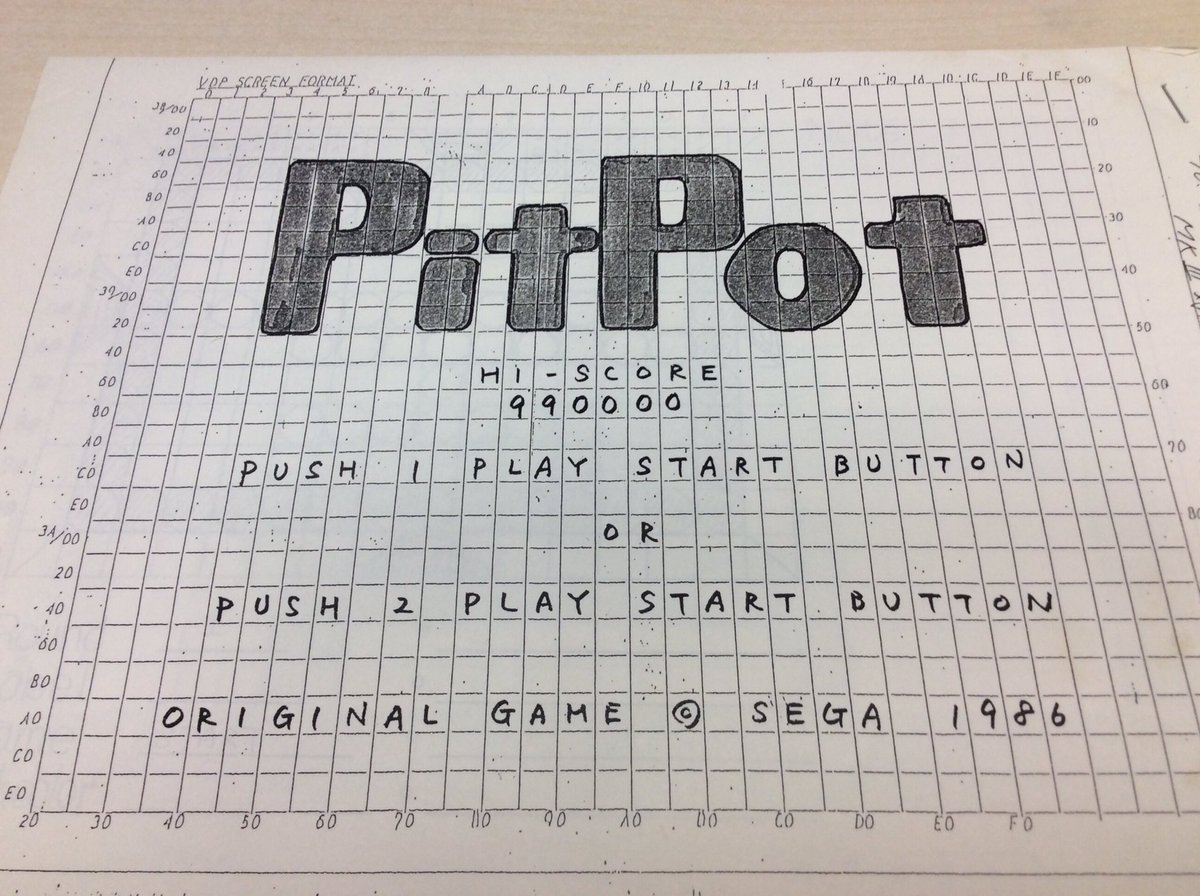 VDP SCREEN FORMAT
0 1 2 3 4 5 6 7 8 A B C D E F 10 11 12 13 14 16 17 18 19 1A 1B 1C 1D 1E 1F 00
20
40
60
80
A0
C0
E0
20
40
60
80
A0
C0
E0
3A/00
20
40
60
80
A0
C0
E0
10
20
30
40
50
60
70
PitPot
HI-SCORE
990000
PUSH 1 PLAY START BUTTON
OR
PUSH 2 PLAY START BUTTON
ORIGINAL GAME © SEGA 1986
20 30 40 50 60 70 80 90 A0 B0 C0 D0 E0 F0